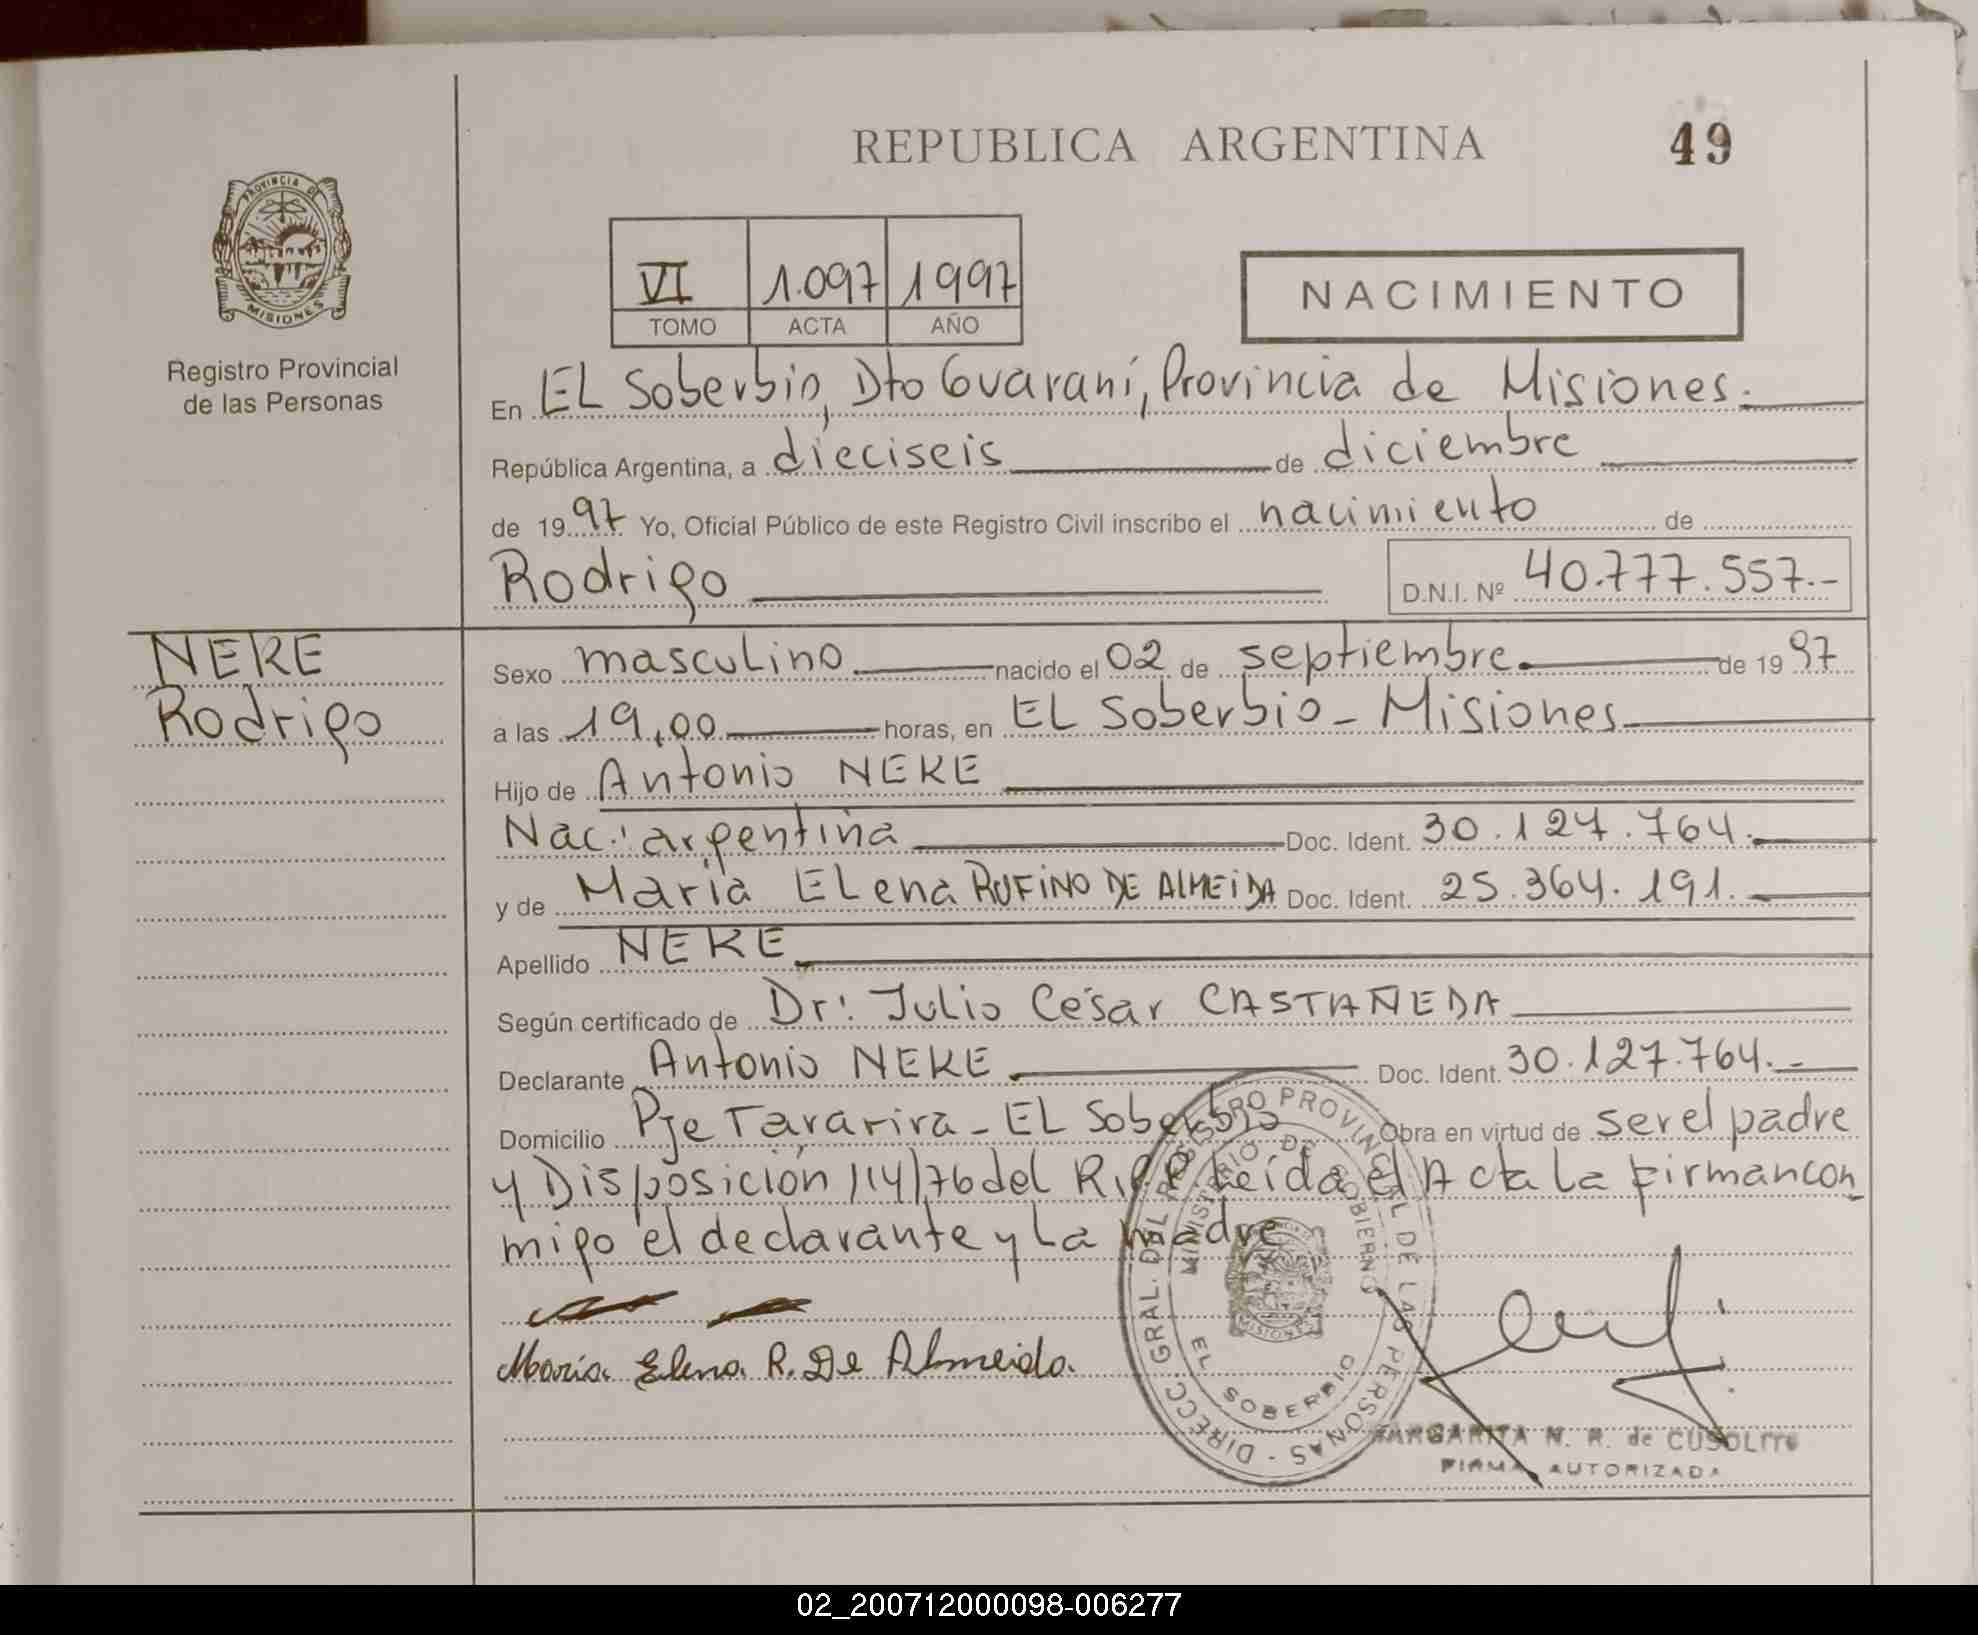 REPUBLICA ARGENTINA
49
PROVINCIA DE
MISIONES
Registro Provincial
de las Personas
VI 1.097 1997
TOMO ACTA AÑO
NACIMIENTO
En EL Soberbio, Dto Guaraní, Provincia de Misiones.
República Argentina, a dieciseis de diciembre
de 1997 Yo, Oficial Público de este Registro Civil inscribo el nacimiento de
Rodrigo D.N.I. Nº 40.777.557.-
NEKE
Rodrigo
Sexo masculino nacido el 02 de septiembre. de 1997
a las 19,00 horas, en EL Soberbio - Misiones
Hijo de Antonio NEKE
Nac: argentina Doc. Ident. 30.127.764.
y de María ELena RUFINO DE ALMEIDA Doc. Ident. 25.364.191.
Apellido NEKE
Según certificado de Dr: Julio César CASTAÑEDA
Declarante Antonio NEKE Doc. Ident. 30.127.764.-
Domicilio Pje Tararira - EL Soberbio Obra en virtud de ser el padre
y Disposición 114/76 del R.P.P Leída el Acta La firman con
migo el declarante y La madre
Maria Elena R. De Almeida.
DIRECC. GRAL. DEL REGISTRO PROVINCIAL DE LAS PERSONAS -
MINISTERIO DE GOBIERNO
MISIONES
EL SOBERBIO
MARGARITA N. R. de CUSOLITO
FIRMA AUTORIZADA
02_200712000098-006277